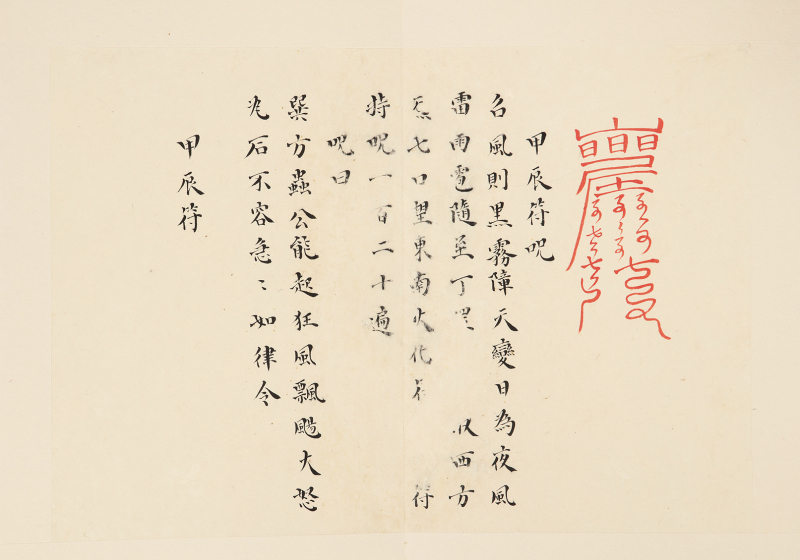 甲辰符呪
召風則黑霧障天變日為夜風
雷雨雹隨至丁 西方
炁七口望東南火化符 符
持呪一百二十遍
呪曰
巽方蟲公能起狂風飄颺大怒
石不容急〻如律令
甲辰符